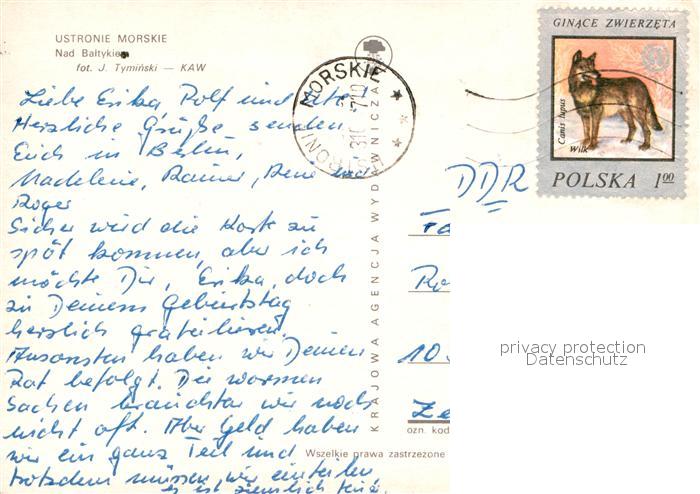 USTRONIE MORSKIE
Nad Bałtykiem
fot. J. Tymiński — KAW
Liebe Erika Rolf und
Herzliche Grüße senden
Euch in Berlin,
Madeleine, Rainer, René und
Roger
Sicher wird die Karte zu
spät kommen, aber ich
möchte Dir, Erika, doch
zu Deinem Geburtstag
herzlich gratulieren.
Ansonsten haben wir Deinen
Rat befolgt. Die warmen
Sachen brauchten wir noch
nicht oft. Aber Geld haben
wir ein ganz Teil und
trotzdem müssen wir einteilen
es ist ziemlich
KRAJOWA AGENCJA WYDAWNICZA
MORSKIE
GINĄCE ZWIERZĘTA
Canis lupus
Wilk
POLSKA 1.00
DDR
10
ozn. kod
Wszelkie prawa zastrzeżone
privacy protection
Datenschutz